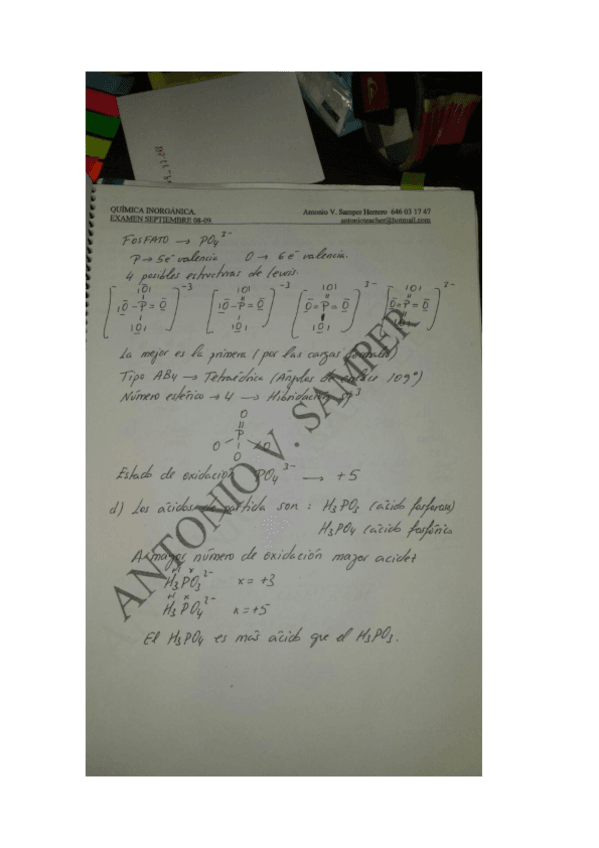 QUÍMICA INORGÁNICA.
EXAMEN SEPTIEMBRE 08-09.
Antonio V. Samper Herrero 646 03 17 47
FOSFATO → PO₄³⁻
P → 5e⁻ valencia O → 6 e⁻ valencia.
4 posibles estructuras de lewis.
La mejor es la primera (por las cargas formales)
Tipo AB₄ → Tetraédrica (Ángulos de enlace 109°)
Número estérico → 4 → Hibridación sp³
O
P
O O
O
Estado de oxidación PO₄³⁻ → +5
d) Los ácidos de partida son: H₃PO₃ (ácido fosforoso)
H₃PO₄ (ácido fosfórico
A mayor número de oxidación mayor acidez
H₃PO₃²⁻ x = +3
H₃PO₄²⁻ x = +5
El H₃PO₄ es más ácido que el H₃PO₃.
ANTONIO V. SAMPER